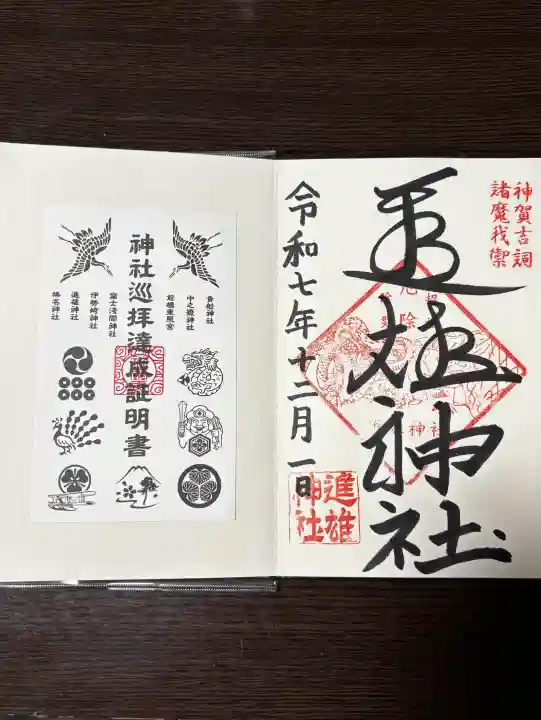 神社巡拝達成証明書
貴船神社
中之嶽神社
前橋東照宮
富士浅間神社
伊勢崎神社
進雄神社
榛名神社
神賀吉詞
諸魔我禦
厄
除
神社
進雄神社
令和七年十二月一日
進雄
神社